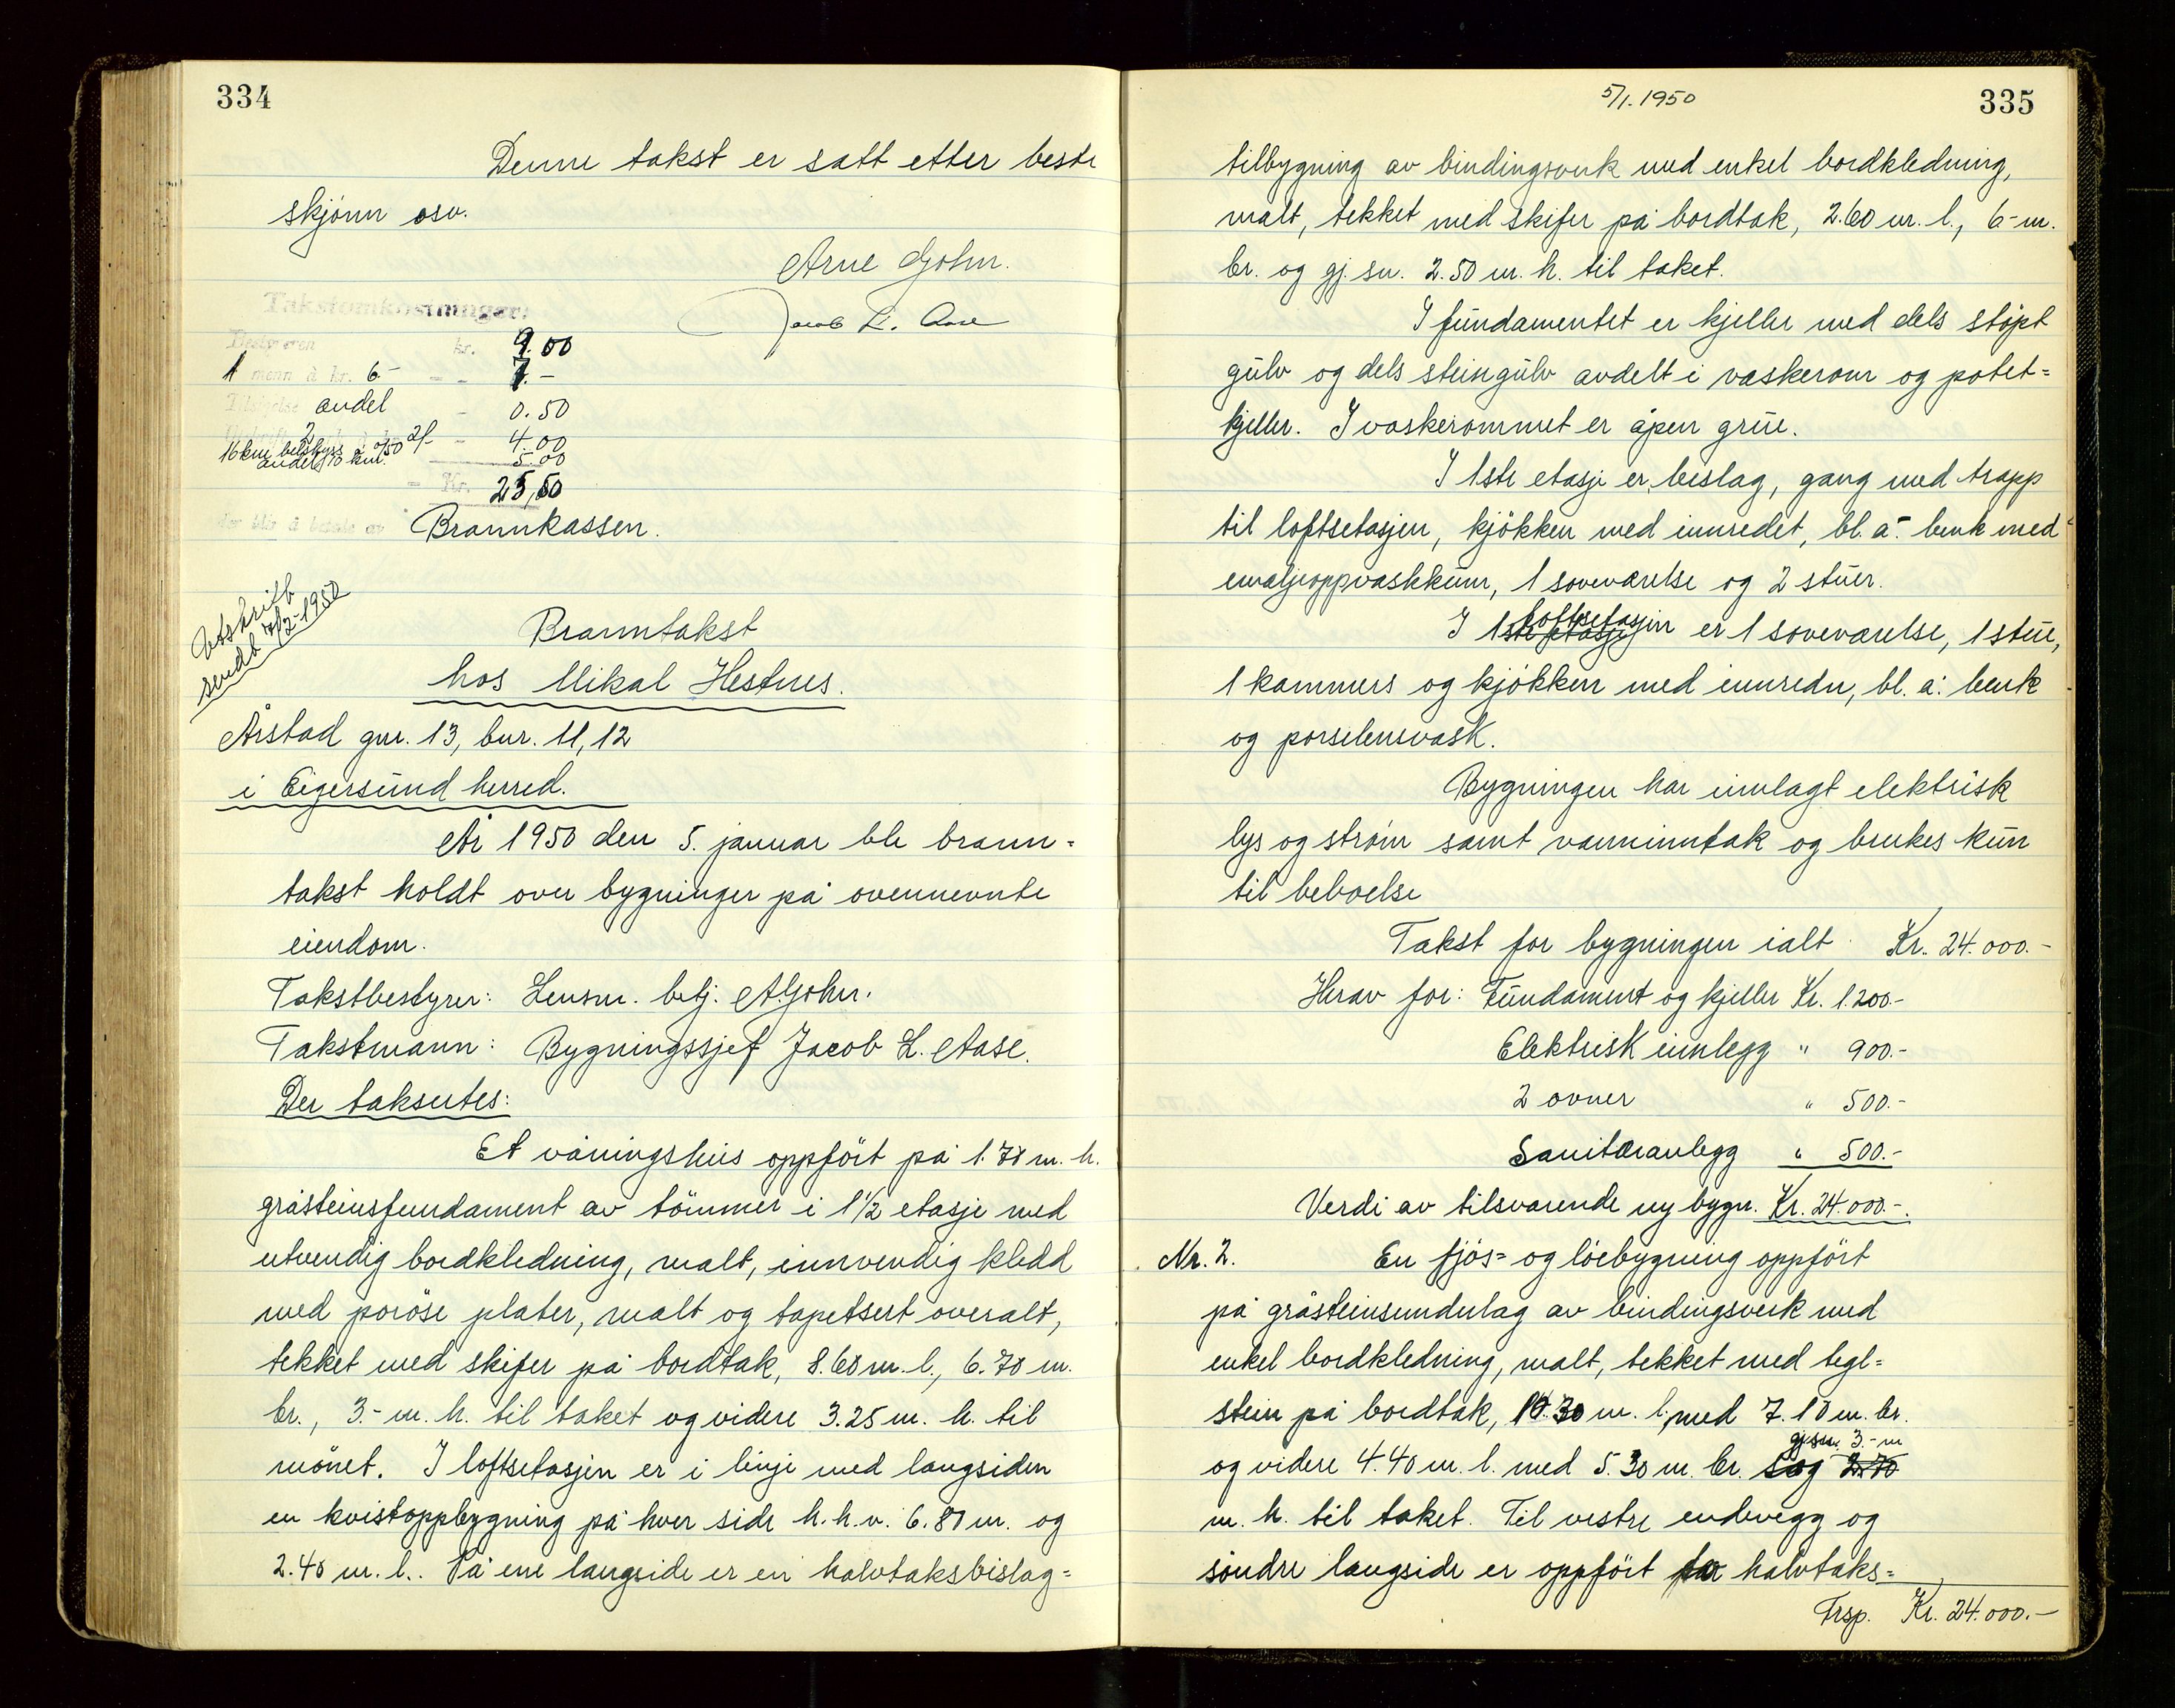 334
Denne takst er satt etter beste
skjønn osv.
Arne Gohn.
Jacob L. Aase
Takstomkostninger:
Bestyreren kr. 9.00
1 menn à kr. 6.- - - 7.-
andel - 0.50
2 2/- - 4.00
16 km bilskyss à 0/50
andel 10 km. 5.00
= Kr. 25,50
der blir å betale av Brannkassen.
Utskrift
sendt 1950
Branntakst
hos Mikal Hestnes.
Årstad gnr. 13, bnr. 11, 12
i Eigersund herred.
År 1950 den 5. januar ble brann=
takst holdt over bygninger på ovennevnte
eiendom.
Takstbestyrer: Lensm. betj. A. Gohn.
Takstmann: Bygningssjef Jacob L. Aase.
Der takseres:
Et våningshus oppført på 1.70 m. h.
gråsteinsfundament av tømmer i 1 1/2 etasje med
utvendig bordkledning, malt, innvendig kledd
med porøse plater, malt og tapetsert overalt,
tekket med skifer på bordtak, 8.60 m. l., 6.70 m.
br., 3.- m. h. til taket og videre 3.25 m. h. til
mønet. I loftsetasjen er i linje med langsiden
en kvistoppbygning på hver side h.h.v. 6.80 m. og
2.40 m. l.. På ene langside er en halvtaksbislag=
5/1. 1950
335
tilbygning av bindingsverk med enkel bordkledning,
malt, tekket med skifer på bordtak, 2.60 m. l., 6.- m.
br. og gj.sn. 2.50 m. h. til taket.
I fundamentet er kjeller med dels støpt
gulv og dels steingulv avdelt i vaskerom og potet=
kjeller. I vaskerommet er åpen grue.
I 1ste etasje er beslag, gang med trapp
til loftsetasjen, kjøkken med innredet, bl. a. benk med
emaljeoppvaskkum, 1 soveværelse og 2 stuer.
I 1ste etasje loftsetasjen er 1 soveværelse, 1 stue,
1 kammers og kjøkken med innredn, bl. a. benk
og porselensvask.
Bygningen har innlagt elektrisk
lys og strøm samt vanninntak og brukes kun
til beboelse
Takst for bygningen ialt Kr. 24.000.-
Herav for: Fundament og kjeller Kr. 1.200.-
Elektrisk innlegg " 900.-
2 ovner " 500.-
Sanitæranlegg " 500.-
Verdi av tilsvarende ny bygn. Kr. 24.000.-.
Nr. 2. En fjøs= og løebygning oppført
på gråsteinsunderlag av bindingsverk med
enkel bordkledning, malt, tekket med tegl=
stein på bordtak, 10.30 m. l. med 7.10 m. br.
gj.sn. 3.- m
og videre 4.40 m. l. med 5.30 m. br. og 2.70
m. h. til taket. Til vestre endevegg og
søndre langside er oppført halvtaks=
Trsp. Kr. 24.000.-